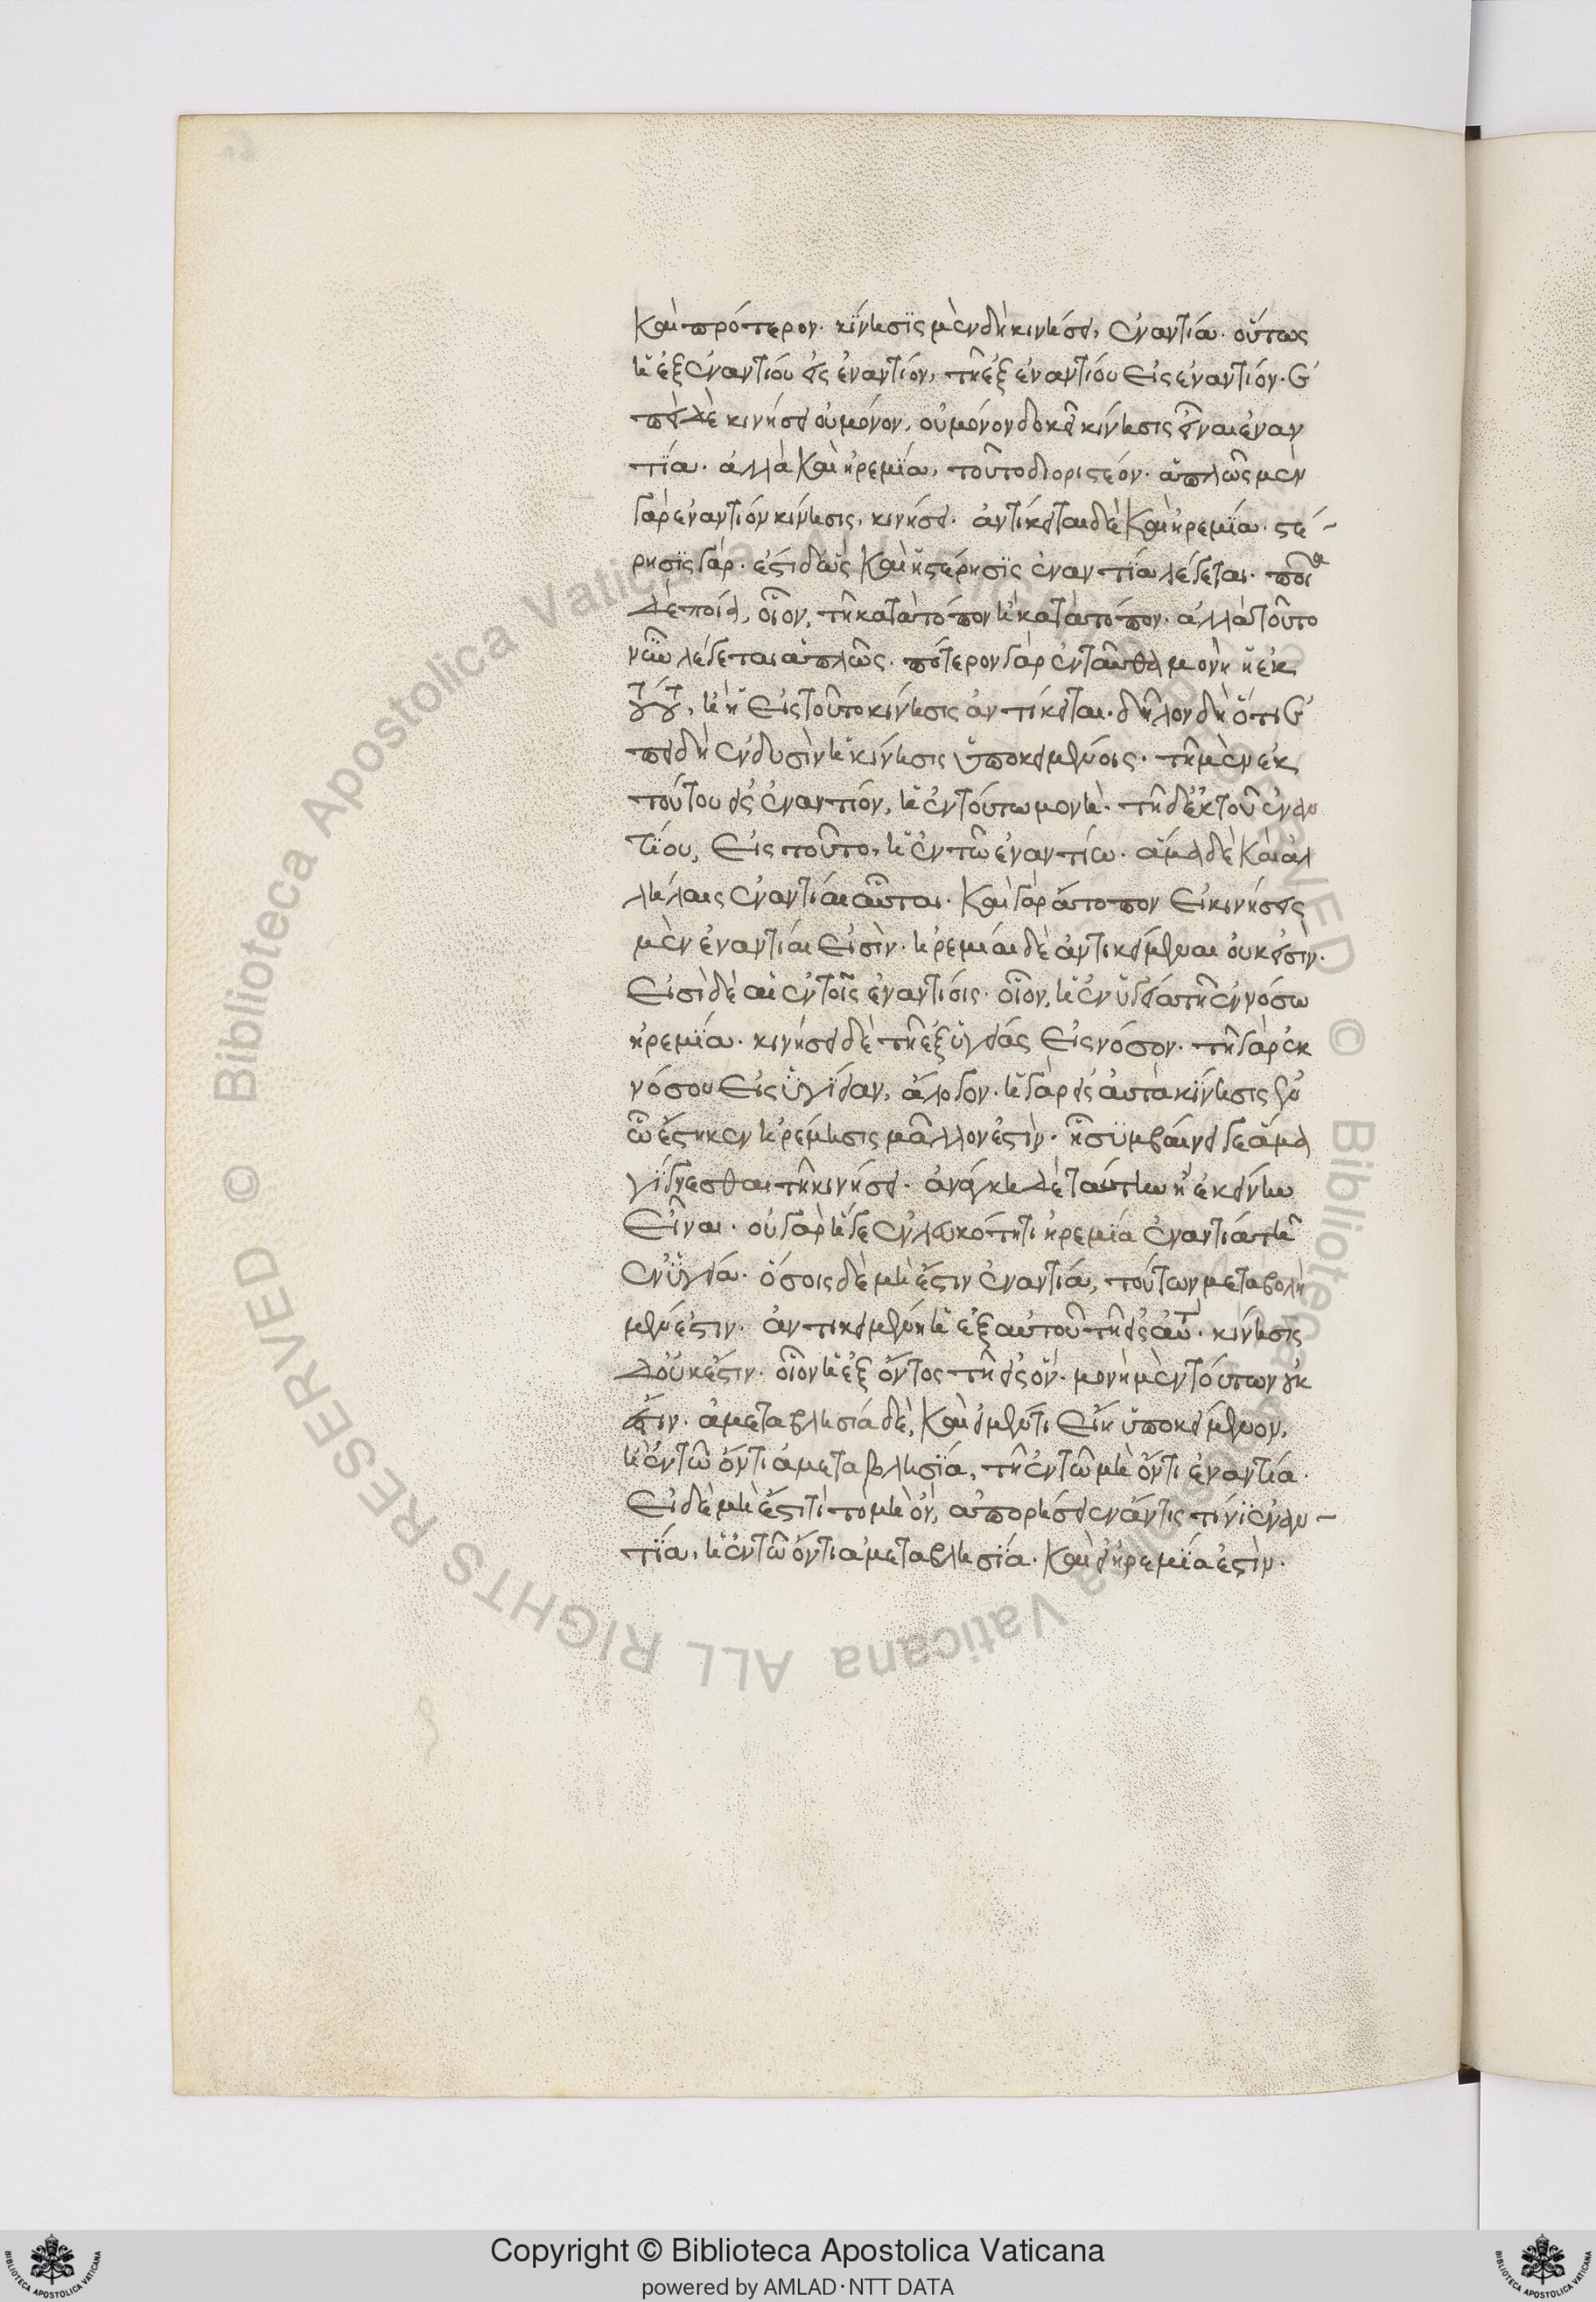 καὶ πρότερον· κίνησϊς μὲν δὴ κινήσει, ἐναντία· οὕτως
ἡ ἐξ ἐναντίου εἰς ἐναντίον, τῆ ἐξ ἐναντίου εἰς ἐναντίον· ἐ
πεὶ δὲ κινήσει οὐ μόνον, οὐ μόνον δοκεῖ κίνησις εἶναι ἐναν
τία· ἀλλὰ καὶ ἠρεμΐα, τοῦτο διοριστέον· ἁπλῶς μὲν
γὰρ ἐναντίον κίνησις, κινήσει· ἀντίκειται δὲ καὶ ἠρεμΐα· στέ-
ρησϊς γάρ· ἔστι δ' ὡς καὶ ἡ στέρησϊς ἐναντία λέγεται· ποι
δὲ ποία, οἷον, τῆ κατὰ τόπον ἡ κατὰ τόπον· ἀλλὰ τοῦτο
νῦν λέγεται ἁπλῶς· πότερον γὰρ ἐνταῦθα μονῆ ἡ ἐκ
, ἢ ἡ εἰς τοῦτο κίνησις ἀντίκειται· δῆλον δὴ ὅτι ἐ
πεὶ δὴ ἐν δυσὶν ἡ κίνησις ὑποκειμένοις· τῆ μὲν ἐκ
τούτου εἰς ἐναντίον, ἡ ἐν τούτω μονή· τῆ δ' ἐκ τοῦ ἐναν
τίου, εἰς τοῦτο, ἡ ἐν τῶ ἐναντίω· ἅμα δὲ καὶ ἀλ
λήλαις ἐναντίαι αὗται· καὶ γὰρ ἄτοπον εἰ κινήσεις
μὲν ἐναντίαι εἰσὶν· ἠρεμίαι δὲ ἀντικείμεναι οὐκ εἰσὶν·
εἰσὶ δὲ αἱ ἐν τοῖς ἐναντίοις· οἷον, ἡ ἐν ὑγεία τῆ ἐν νόσω
ἠρεμΐα· κινήσει δὲ τῆ ἐξ ὑγείας εἰς νόσον· τῆ γὰρ ἐκ
νόσου εἰς ὑγίειαν, ἄλογον· ἡ γὰρ εἰς αὐτὰ κίνησις ἐν
ὧ ἕστηκεν ἠρέμησις μᾶλλον ἐστίν· ἢ συμβαίνει γε ἅμα
γίγνεσθαι τῆ κινήσει· ἀνάγκη δὲ ταύτην ἢ ἐκείνην
εἶναι· οὐ γὰρ ἥ γε ἐν λευκότητι ἠρεμία ἐναντία τῆ
ἐν ὑγεία· ὅσοις δὲ μὴ ἔστιν ἐναντία, τούτων μεταβολὴ
μέν ἐστιν· ἀντικειμένη ἡ ἐξ αὐτοῦ τῆ εἰς αὐτ· κίνησις
δ' οὐκ ἔστιν· οἷον ἡ ἐξ ὄντος τῆ εἰς ὄν· μονὴ μὲν τούτων οὐκ
ἔστιν· ἀμεταβλησία δὲ, καὶ εἰ μέν τι εἴη ὑποκείμενον,
ἡ ἐν τῶ ὄντι ἀμεταβλησΐα, τῆ ἐν τῶ μὴ ὄντι ἐναντία·
εἰ δὲ μὴ ἔστι τὶ τὸ μὴ ὂν, ἀπορήσειεν ἄν τις τίνι ἐναν-
τΐα, ἡ ἐν τῶ ὄντι ἀμεταβλησΐα· καὶ εἰ ἠρεμΐα ἐστὶν·
Copyright © Biblioteca Apostolica Vaticana
powered by AMLAD·NTT DATA